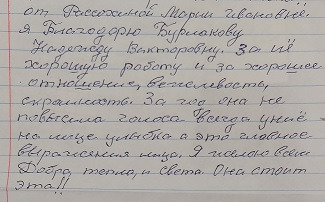 от Рассохиной Марии Ивановне.
я Благодарю Бурлакову
Надежду Викторовну. За её
хорошую роботу и за хорошее
отношение, вежливость,
скромность. За год она не
повысела голоса всегда унеё
на лице улыбка а это главное
выражения лица. Я желаю всем
Добра, тепла, и света. Она стоит
эта!!